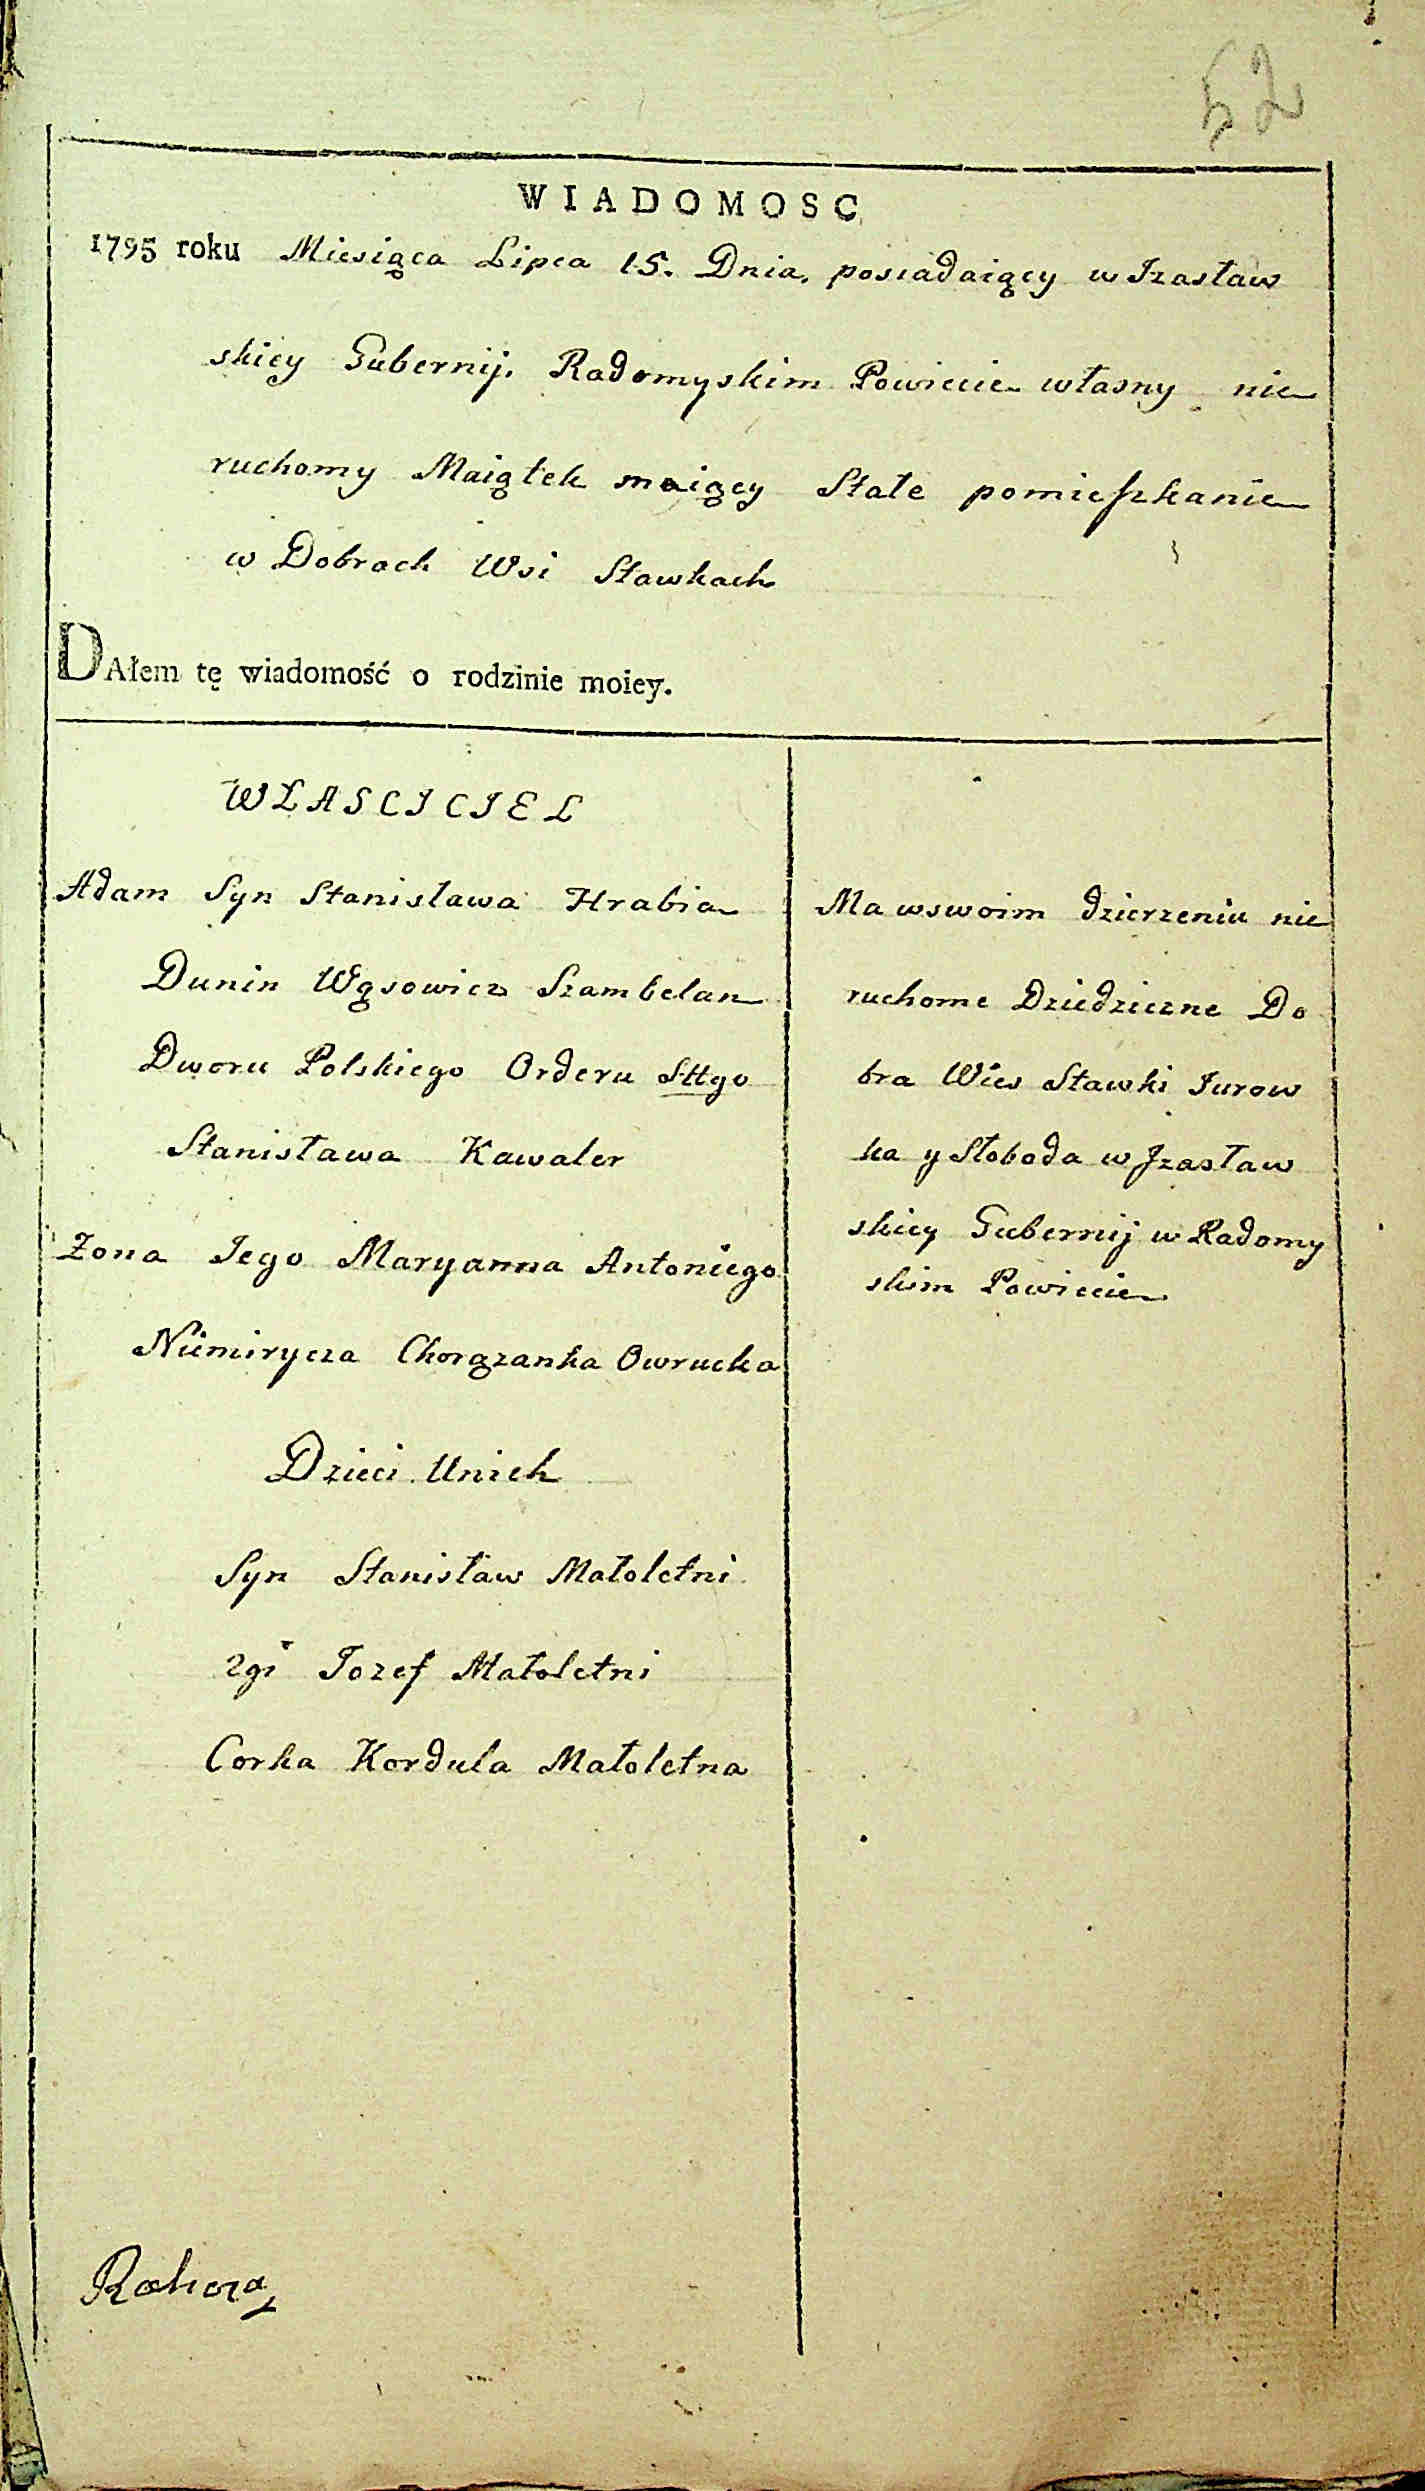 52
WIADOMOSC
1795 roku Miesiąca Lipca 15. Dnia, posiadaiący w Izasław
skiey Gubernij. Radomyskim Powiecie własny nie
ruchomy Maiątek maiący Stałe pomieszkanie
w Dobrach Wsi Stawkach
DAłem tę wiadomość o rodzinie moiey.
WŁASCICIEL
Adam Syn Stanisława Hrabia
Dunin Wąsowicz Szambelan
Dworu Polskiego Orderu Sttgo
Stanisława Kawaler
Żona Jego Maryanna Antoniego
Niemirycza Chorązanka Owrucka
Dzieci Unich
Syn Stanisław Małoletni
2gi Jozef Małoletni
Corka Kordula Małoletna
Ma wswoim dzierzeniu nie
ruchome Dziedziczne Do
bra Wies Stawki Jurow
ka y Słoboda w Jzasław
skiey Gubernij w Radomy
skim Powiecie